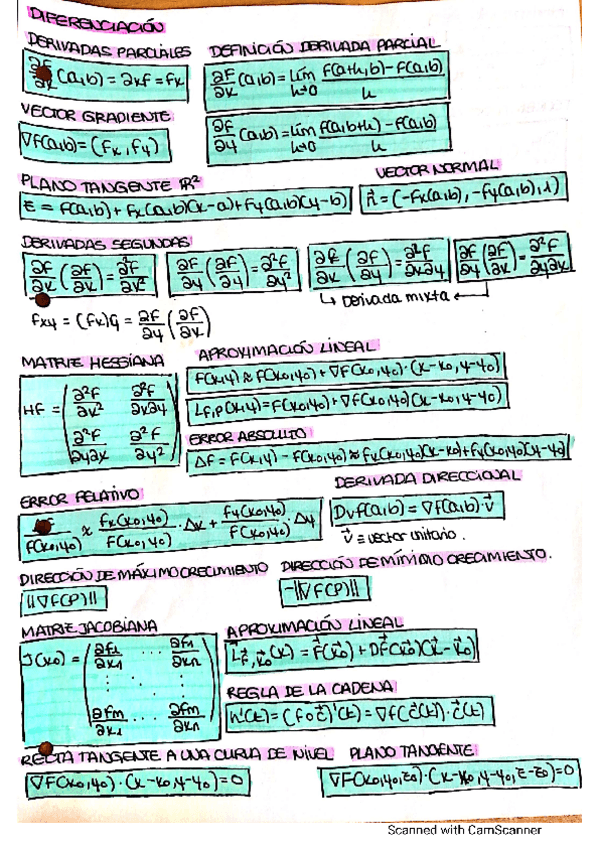 DIFERENCIACIÓN
DERIVADAS PARCIALES
∂f/∂x (a,b) = ∂xf = fx
DEFINICIÓN DERIVADA PARCIAL
∂f/∂x (a,b) = lím h→0 (f(a+h,b) - f(a,b))/h
VECTOR GRADIENTE
∇f(a,b) = (fx, fy)
∂f/∂y (a,b) = lím h→0 (f(a,b+h) - f(a,b))/h
PLANO TANGENTE ℝ²
z = f(a,b) + fx(a,b)(x-a) + fy(a,b)(y-b)
VECTOR NORMAL
n⃗ = (-fx(a,b), -fy(a,b), 1)
DERIVADAS SEGUNDAS
∂f/∂x (∂f/∂x) = ∂²f/∂x²
∂f/∂y (∂f/∂y) = ∂²f/∂y²
∂f/∂x (∂f/∂y) = ∂²f/∂x∂y
∂f/∂y (∂f/∂x) = ∂²f/∂y∂x
↳ Derivada mixta ←
fxy = (fx)y = ∂f/∂y (∂f/∂x)
MATRIZ HESSIANA
HF = (∂²f/∂x² ∂²f/∂x∂y
∂²f/∂y∂x ∂²f/∂y²)
APROXIMACIÓN LINEAL
f(x,y) ≈ f(x0,y0) + ∇f(x0,y0)·(x-x0, y-y0)
Lf,p(x,y) = f(x0,y0) + ∇f(x0,y0)(x-x0, y-y0)
ERROR ABSOLUTO
Δf = f(x,y) - f(x0,y0) ≈ fx(x0,y0)(x-x0) + fy(x0,y0)(y-y0)
ERROR RELATIVO
/f(x0,y0) ≈ fx(x0,y0)/f(x0,y0) · Δx + fy(x0,y0)/f(x0,y0) · Δy
DERIVADA DIRECCIONAL
Dvf(a,b) = ∇f(a,b)·v⃗
v⃗ ≡ vector unitario.
DIRECCIÓN DE MÁXIMO CRECIMIENTO
||∇f(P)||
DIRECCIÓN DE MÍNIMO CRECIMIENTO.
-||∇f(P)||
MATRIZ JACOBIANA
J(x0) = (∂f1/∂x1 ... ∂f1/∂xn
∂fm/∂x1 ... ∂fm/∂xn)
APROXIMACIÓN LINEAL
Lf⃗,x⃗0(x) = f⃗(x⃗0) + Df⃗(x⃗0)(x⃗ - x⃗0)
REGLA DE LA CADENA
h'(t) = (f∘c⃗)'(t) = ∇f(c⃗(t))·c⃗(t)
RECTA TANGENTE A UNA CURVA DE NIVEL
∇f(x0,y0)·(x-x0, y-y0) = 0
PLANO TANGENTE
∇f(x0,y0,z0)·(x-x0, y-y0, z-z0) = 0
Scanned with CamScanner